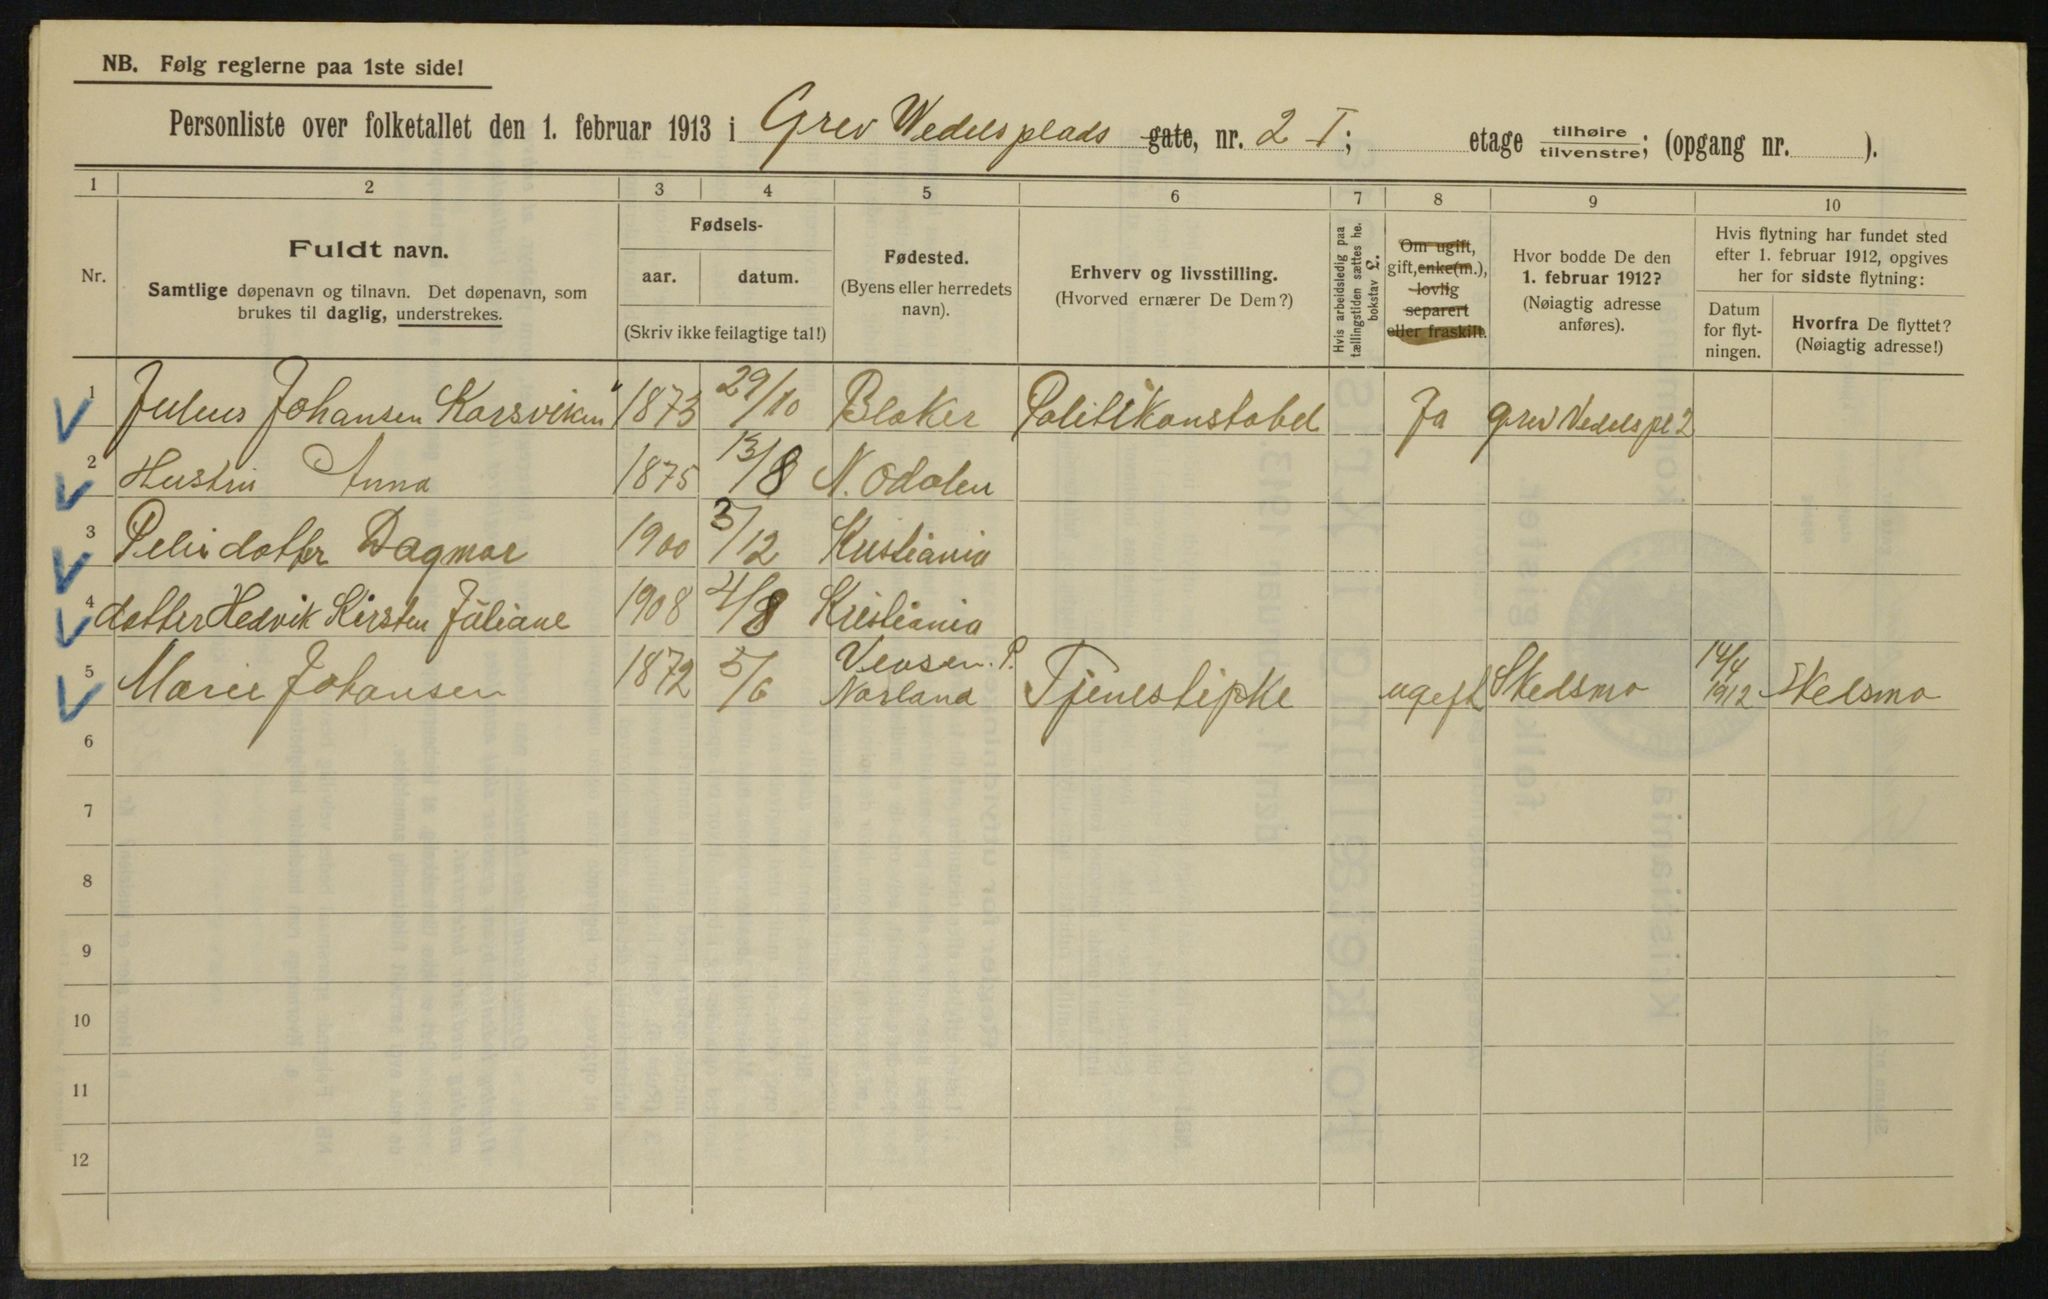 NB. Følg reglerne paa 1ste side!
Personliste over folketallet den 1. februar 1913 i Grev Wedelsplads gate, nr. 2 I; etage tilhøire/tilvenstre; (opgang nr. ).
1 2 3 4 5 6 7 8 9 10
Nr.
Fuldt navn.
Samtlige døpenavn og tilnavn. Det døpenavn, som
brukes til daglig, understrekes.
Fødsels-
aar. datum.
(Skriv ikke feilagtige tal!)
Fødested.
(Byens eller herredets
navn).
Erhverv og livsstilling.
(Hvorved ernærer De Dem?)
Hvis arbeidsledig paa
tællingstiden sættes he.
bokstav L.
Om ugift,
gift, enke(m.),
lovlig
separert
eller fraskilt.
Hvor bodde De den
1. februar 1912?
(Nøiagtig adresse
anføres).
Hvis flytning har fundet sted
efter 1. februar 1912, opgives
her for sidste flytning:
Datum
for flyt-
ningen.
Hvorfra De flyttet?
(Nøiagtig adresse!)
1 Julius Johansen Korsviken 1873 29/10 Blaker Politikonstabel Ja Grev Vedelspl 2
2 Hustru Anna 1875 13/8 N. Odalen
3 dotter Dagmar 1900 3/12 Kristiania
4 dotter Hedvik Kirsten Juliane 1908 4/8 Kristiania
5 Marie Johansen 1872 5/6 Norland Tjenestepike ugift Skedsmo 14/4 1912 Skedsmo
6
7
8
9
10
11
12